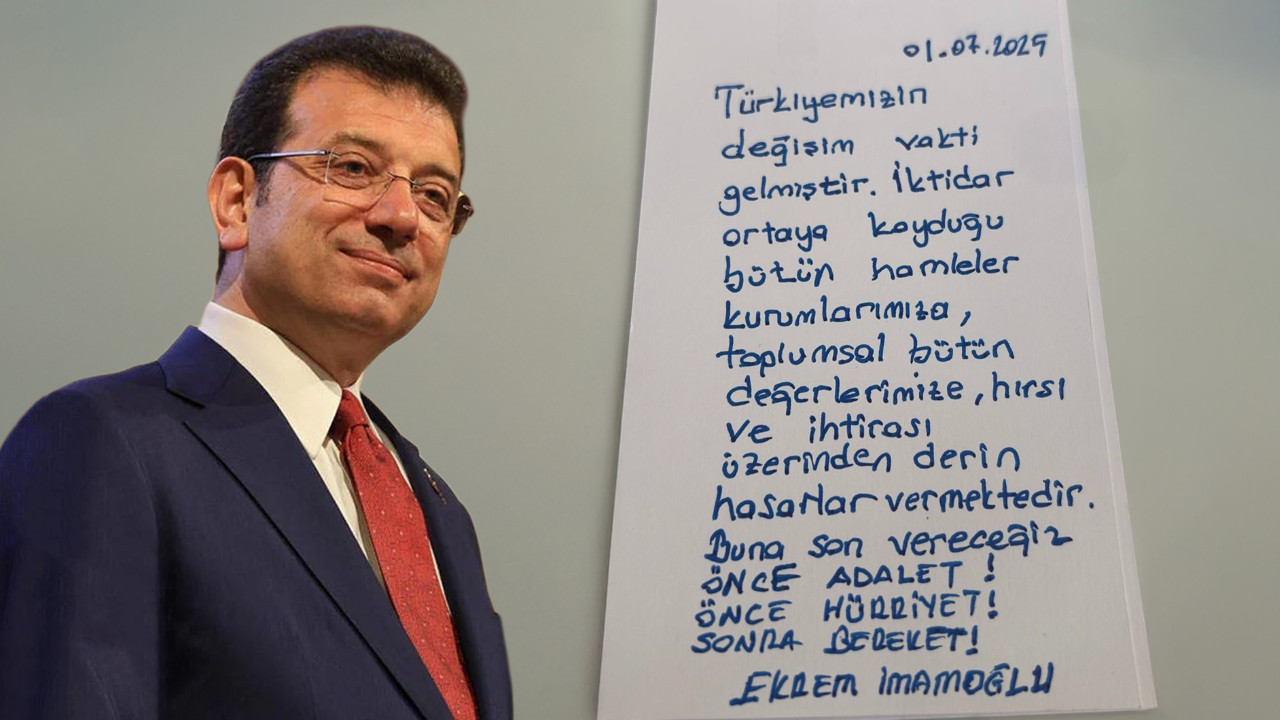 01.07.2025
Türkiyemizin
değişim vakti
gelmiştir. İktidar
ortaya koyduğu
bütün hamleler
kurumlarımıza,
toplumsal bütün
değerlerimize, hırsı
ve ihtirası
üzerinden derin
hasarlar vermektedir.
Buna son vereceğiz
ÖNCE ADALET !
ÖNCE HÜRRİYET!
SONRA BEREKET!
EKREM İMAMOĞLU